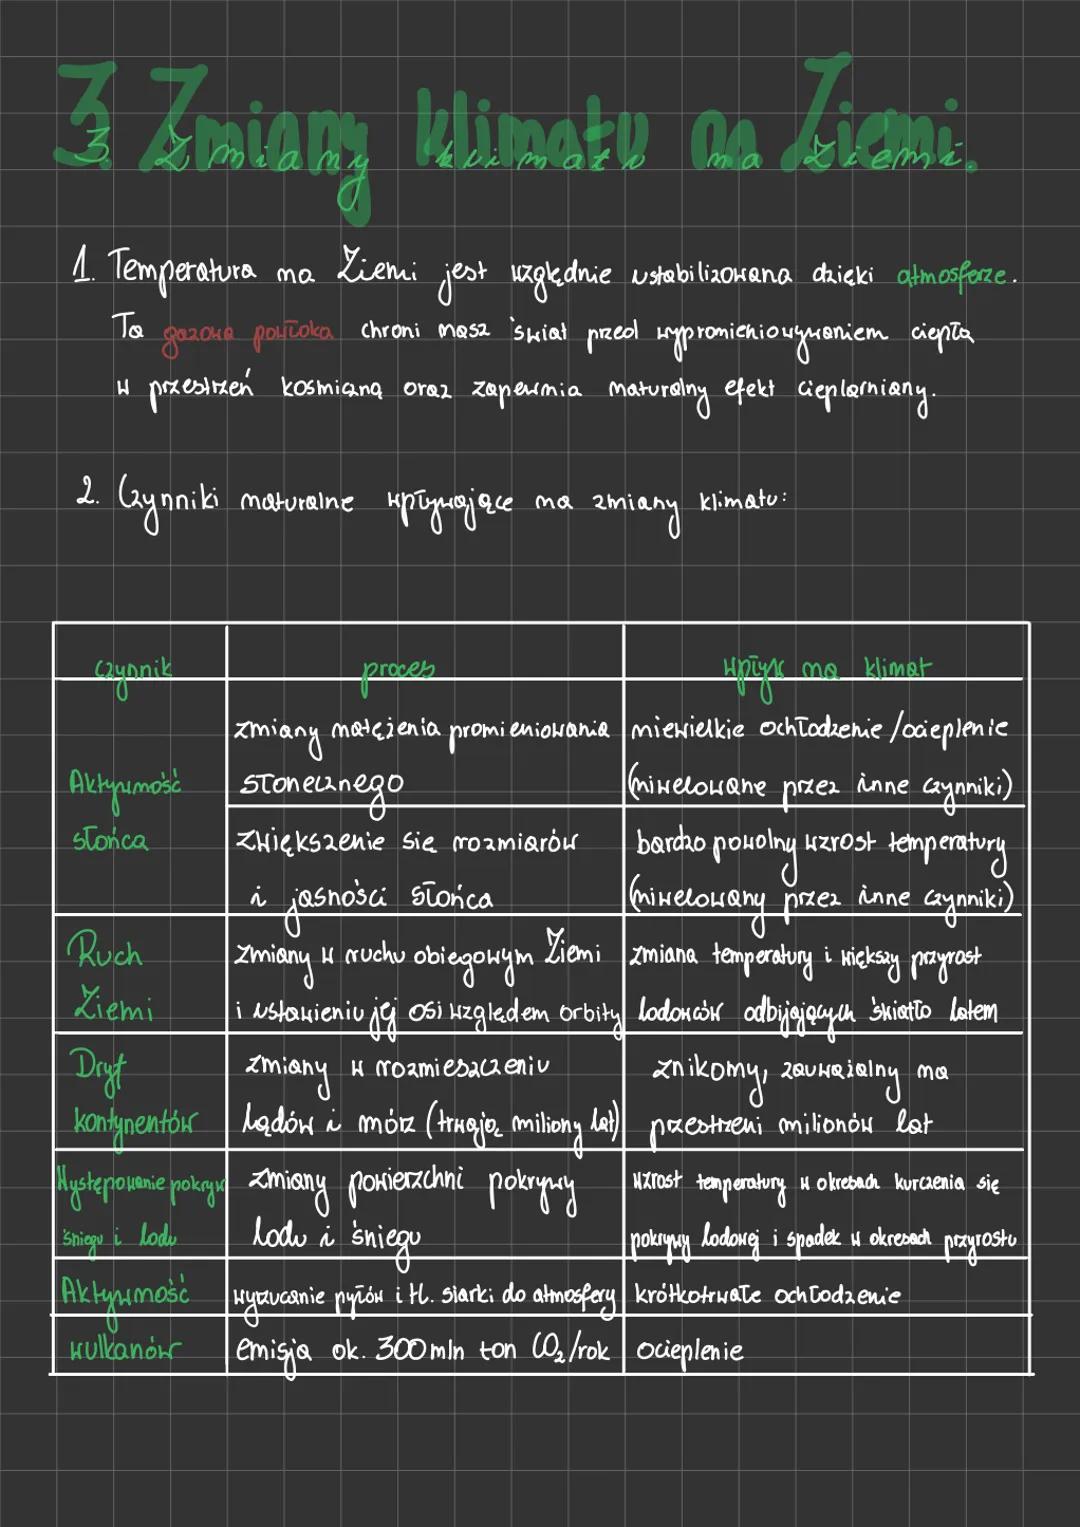 3. Zmiany klimatu na Ziemi.
1. Temperatura na Ziemi jest względnie ustabilizowana dzięki atmosferze.
Ta gazowa powłoka chroni nasz świat przed wypromieniowywaniem ciepła
w przestrzeń kosmiczną oraz zapewnia naturalny efekt cieplarniany.
2. Czynniki naturalne wpływające na zmiany klimatu:
czynnik proces wpływ na klimat
Aktywność słońca
zmiany natężenia promieniowania
słonecznego
niewielkie ochłodzenie / ocieplenie
(niwelowane przez inne czynniki)
zwiększenie się rozmiarów
i jasności słońca
bardzo powolny wzrost temperatury
(niwelowany przez inne czynniki)
Ruch
Ziemi
zmiany w ruchu obiegowym Ziemi
i ustawieniu jej osi względem orbity
zmiana temperatury i większy przyrost
lodowców odbijających światło latem
Dryf
kontynentów
zmiany w rozmieszczeniu
lądów i mórz (trwają miliony lat)
znikomy, zauważalny na
przestrzeni milionów lat
Występowanie pokryw
śniegu i lodu
zmiany powierzchni pokrywy
lodu i śniegu
wzrost temperatury w okresach kurczenia się
pokrywy lodowej i spadek w okresach przyrostu
Aktywność
wulkanów
wyrzucanie pyłów i tl. siarki do atmosfery
krótkotrwałe ochłodzenie
emisja ok. 300 mln ton CO₂/rok
ocieplenie